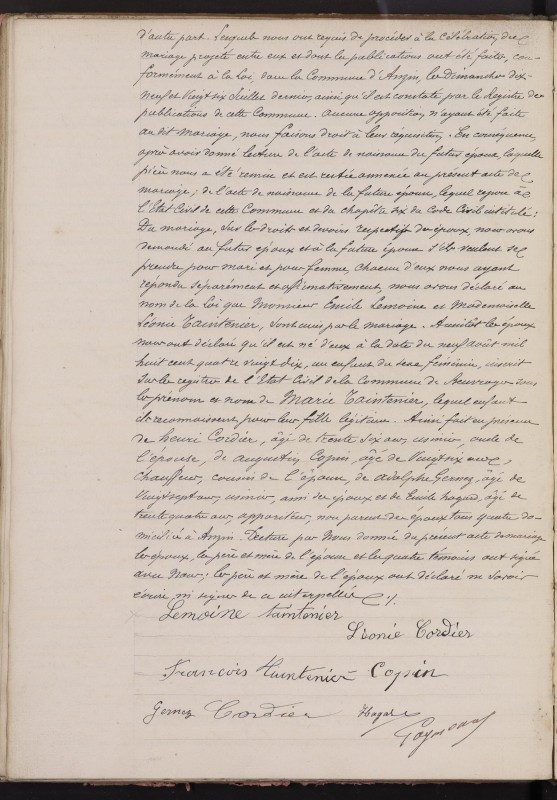 d'autre part. Lesquels nous ont requis de procéder à la célébration du
mariage projeté entre eux et dont les publications ont été faites, con-
formément à la loi, dans la Commune d'Anzin, les Dimanches dix-
neuf et Vingt six Juillet dernier, ainsi qu'il est constaté par le Registre de
publications de cette Commune. Aucune opposition n'ayant été faite
au dit Mariage, nous faisons droit à leur réquisition. En conséquence,
après avoir donné lecture de l'acte de naissance du futur époux, laquelle
pièce nous a été remise et est restée annexée au présent acte de
mariage; de l'acte de naissance de la future épouse, lequel repose à
l'Etat Civil de cette Commune et du chapitre six du Code Civil intitulé:
Du mariage, sur les droits et devoirs respectifs des époux, nous avons
demandé au futur époux et à la future épouse s'ils veulent se
prendre pour mari et pour femme, chacun d'eux nous ayant
répondu séparément et affirmativement, nous avons déclaré au
nom de la loi que Monsieur Emile Lemoine et Mademoiselle
Léonie Taintenier, sont unis par le mariage. Aussitôt les époux
nous ont déclaré qu'il est né d'eux à la date du neuf août mil
huit cent quatre vingt dix, un enfant du sexe féminin, inscrit
sur les registres de l'Etat Civil de la Commune de sous
les prénom et nom de Marie Taintenier, lequel enfant
ils reconnaissent pour leur fille légitime. Ainsi fait en présence
de henri Cordier, âgé de trente six ans, usinier, oncle de
l'épouse, de augustin Copin, âgé de Vingt six ans,
chauffeur, cousin de l'époux, de adolphe Gernez, âgé de
Vingt sept ans, usinier, ami des époux et de Emile hagard, âgé de
trente quatre ans, appariteur, non parent des époux tous quatre do-
miciliés à Anzin. Lecture par Nous donnée du présent acte de mariage
les époux, les père et mère de l'épouse et les quatre témoins ont signé
avec Nous; les père et mère de l'époux ont déclaré ne savoir
écrire, ni signer de ce interpellés ./.
Lemoine taintenier
Léonie Cordier
François Copin
Gernez Cordier